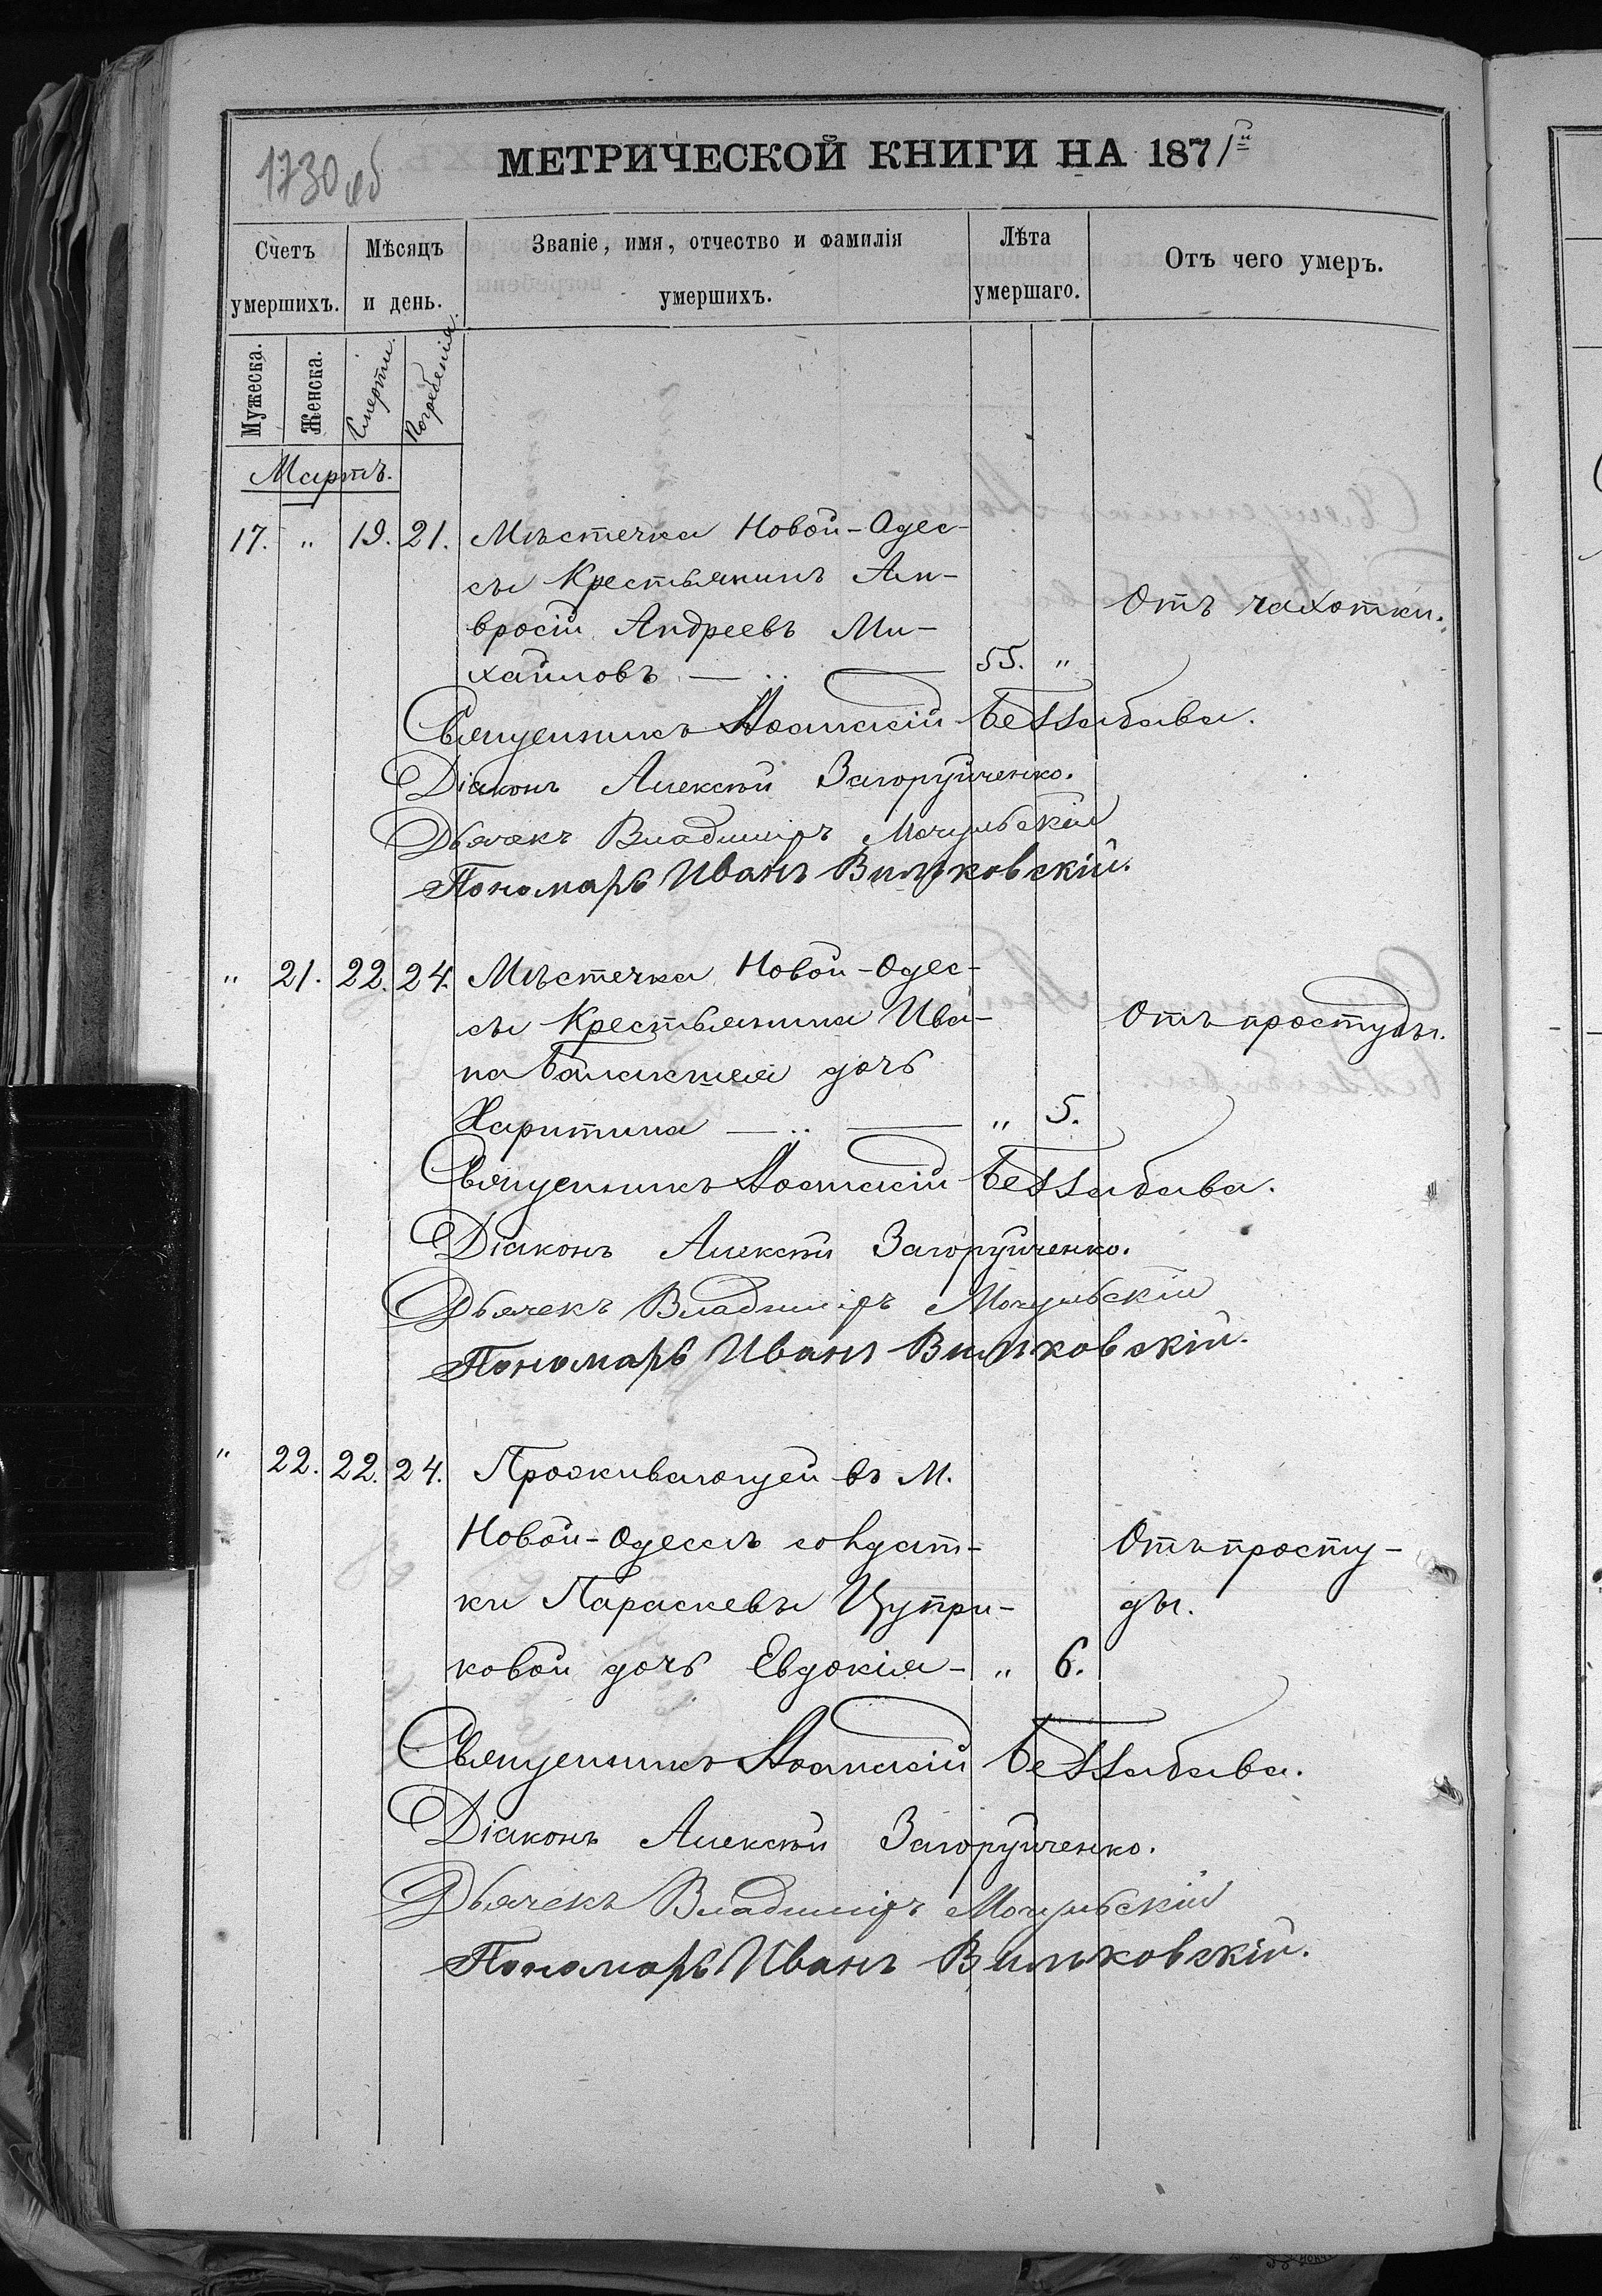 1730 об
МЕТРИЧЕСКОЙ КНИГИ НА 1871й
Счетъ умершихъ. Мѣсяцъ и день. Званіе, имя, отчество и фамилія умершихъ. Лѣта умершаго. Отъ чего умеръ.
Мужеска. Женска. Смерти. Погребенія.
Мартъ.
17. „ 19. 21. Мѣстечка Новой-Одес-
сы Крестьянинъ Ам-
вросій Андреевъ Ми- Отъ чахотки.
хайловъ — 55. „
Священникъ Аѳанасій Беззабава.
Діаконъ Алексѣй Загоруйченко.
Дьячекъ Владиміръ Мочульскій
Пономарь Иванъ Вильковскій.
„ 21. 22. 24. Мѣстечка Новой-Одес-
сы Крестьянина Ива- Отъ простуды.
на Балакшея дочь
Харитина — „ 5.
Священникъ Аѳанасій Беззабава.
Діаконъ Алексѣй Загоруйченко.
Дьячекъ Владиміръ Мочульскій
Пономарь Иванъ Вильковскій.
„ 22. 22. 24. Проживающей въ М.
Новой-Одессѣ солдат- Отъ просту-
ки Параскевы Цупри- ды.
ковой дочь Евдокія - „ 6.
Священникъ Аѳанасій Беззабава.
Діаконъ Алексѣй Загоруйченко.
Дьячекъ Владиміръ Мочульскій
Пономарь Иванъ Вильковскій.